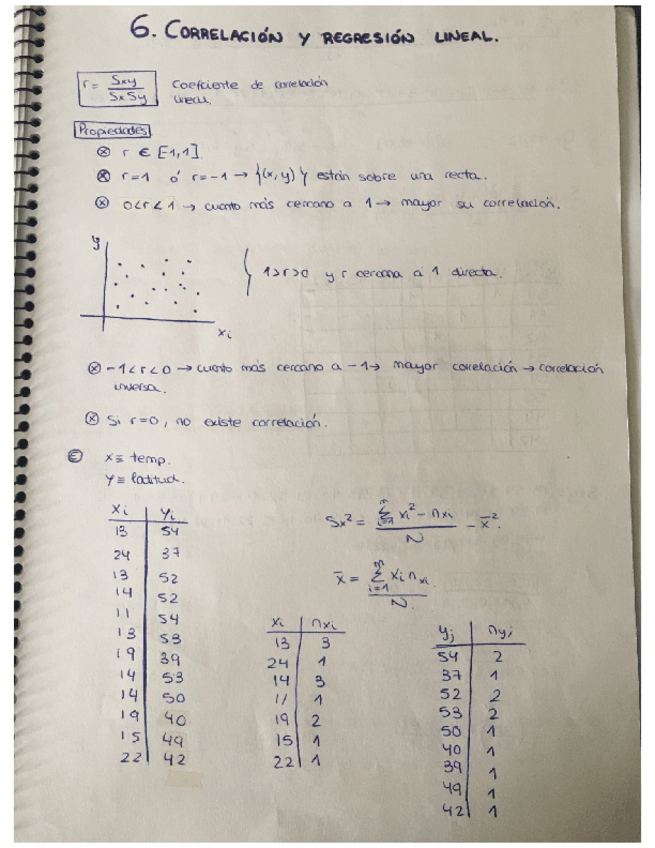 6. CORRELACIÓN Y REGRESIÓN LINEAL.
r = Sxy / SxSy Coeficiente de correlación
lineal.
Propiedades
⊗ r ∈ [-1,1]
⊗ r=1 ó r=-1 → {(x,y)} están sobre una recta.
⊗ 0<r<1 → cuanto más cercano a 1 → mayor su correlación.
y
{ 1>r>0 y r cercana a 1 directa.
xi
⊗ -1<r<0 → cuanto más cercano a -1 → mayor correlación → correlación
inversa.
⊗ Si r=0, no existe correlación.
E x ≡ temp.
Y ≡ latitud.
xi | yi
13 | 54
24 | 37
13 | 52
14 | 52
11 | 54
13 | 53
19 | 39
14 | 53
14 | 50
19 | 40
15 | 49
22 | 42
Sx² = Σ i=1 n xi² - nxi / N - x̄².
x̄ = Σ i=1 n xi nxi / N.
xi | nxi
13 | 3
24 | 1
14 | 3
11 | 1
19 | 2
15 | 1
22 | 1
yj | nyj
54 | 2
37 | 1
52 | 2
53 | 2
50 | 1
40 | 1
39 | 1
49 | 1
42 | 1